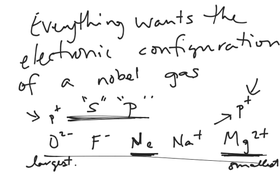 Everything wants the
electronic configuration
of a nobel gas
"S" "P"
p⁺ p⁺
O²⁻ F⁻ Ne Na⁺ Mg²⁺
largest. smallest